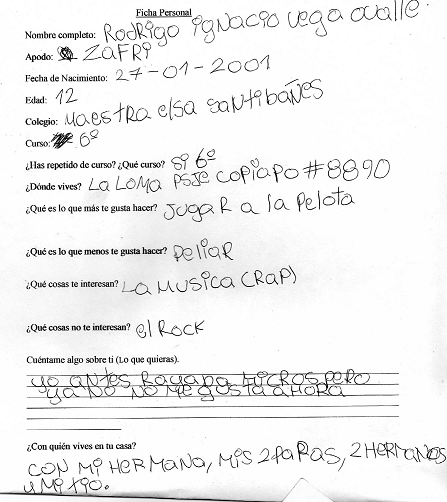 Ficha Personal
Nombre completo: Rodrigo ignacio vega ovalle
Apodo: ZAFRi
Fecha de Nacimiento: 27-01-2001
Edad: 12
Colegio: Maestra elsa santibañes
Curso: 6º
¿Has repetido de curso? ¿Qué curso? si 6º
¿Dónde vives? La Loma psje copiapo #8890
¿Qué es lo que más te gusta hacer? Jugar a la pelota
¿Qué es lo que menos te gusta hacer? peliar
¿Qué cosas te interesan? La musica (Rap)
¿Qué cosas no te interesan? el Rock
Cuéntame algo sobre ti (Lo que quieras).
yo antes Rayaba micros pero
ya no no me gusta ahora
¿Con quién vives en tu casa?
con mi HERMana, Mis 2 papas, 2 HERManos
y mi tio.